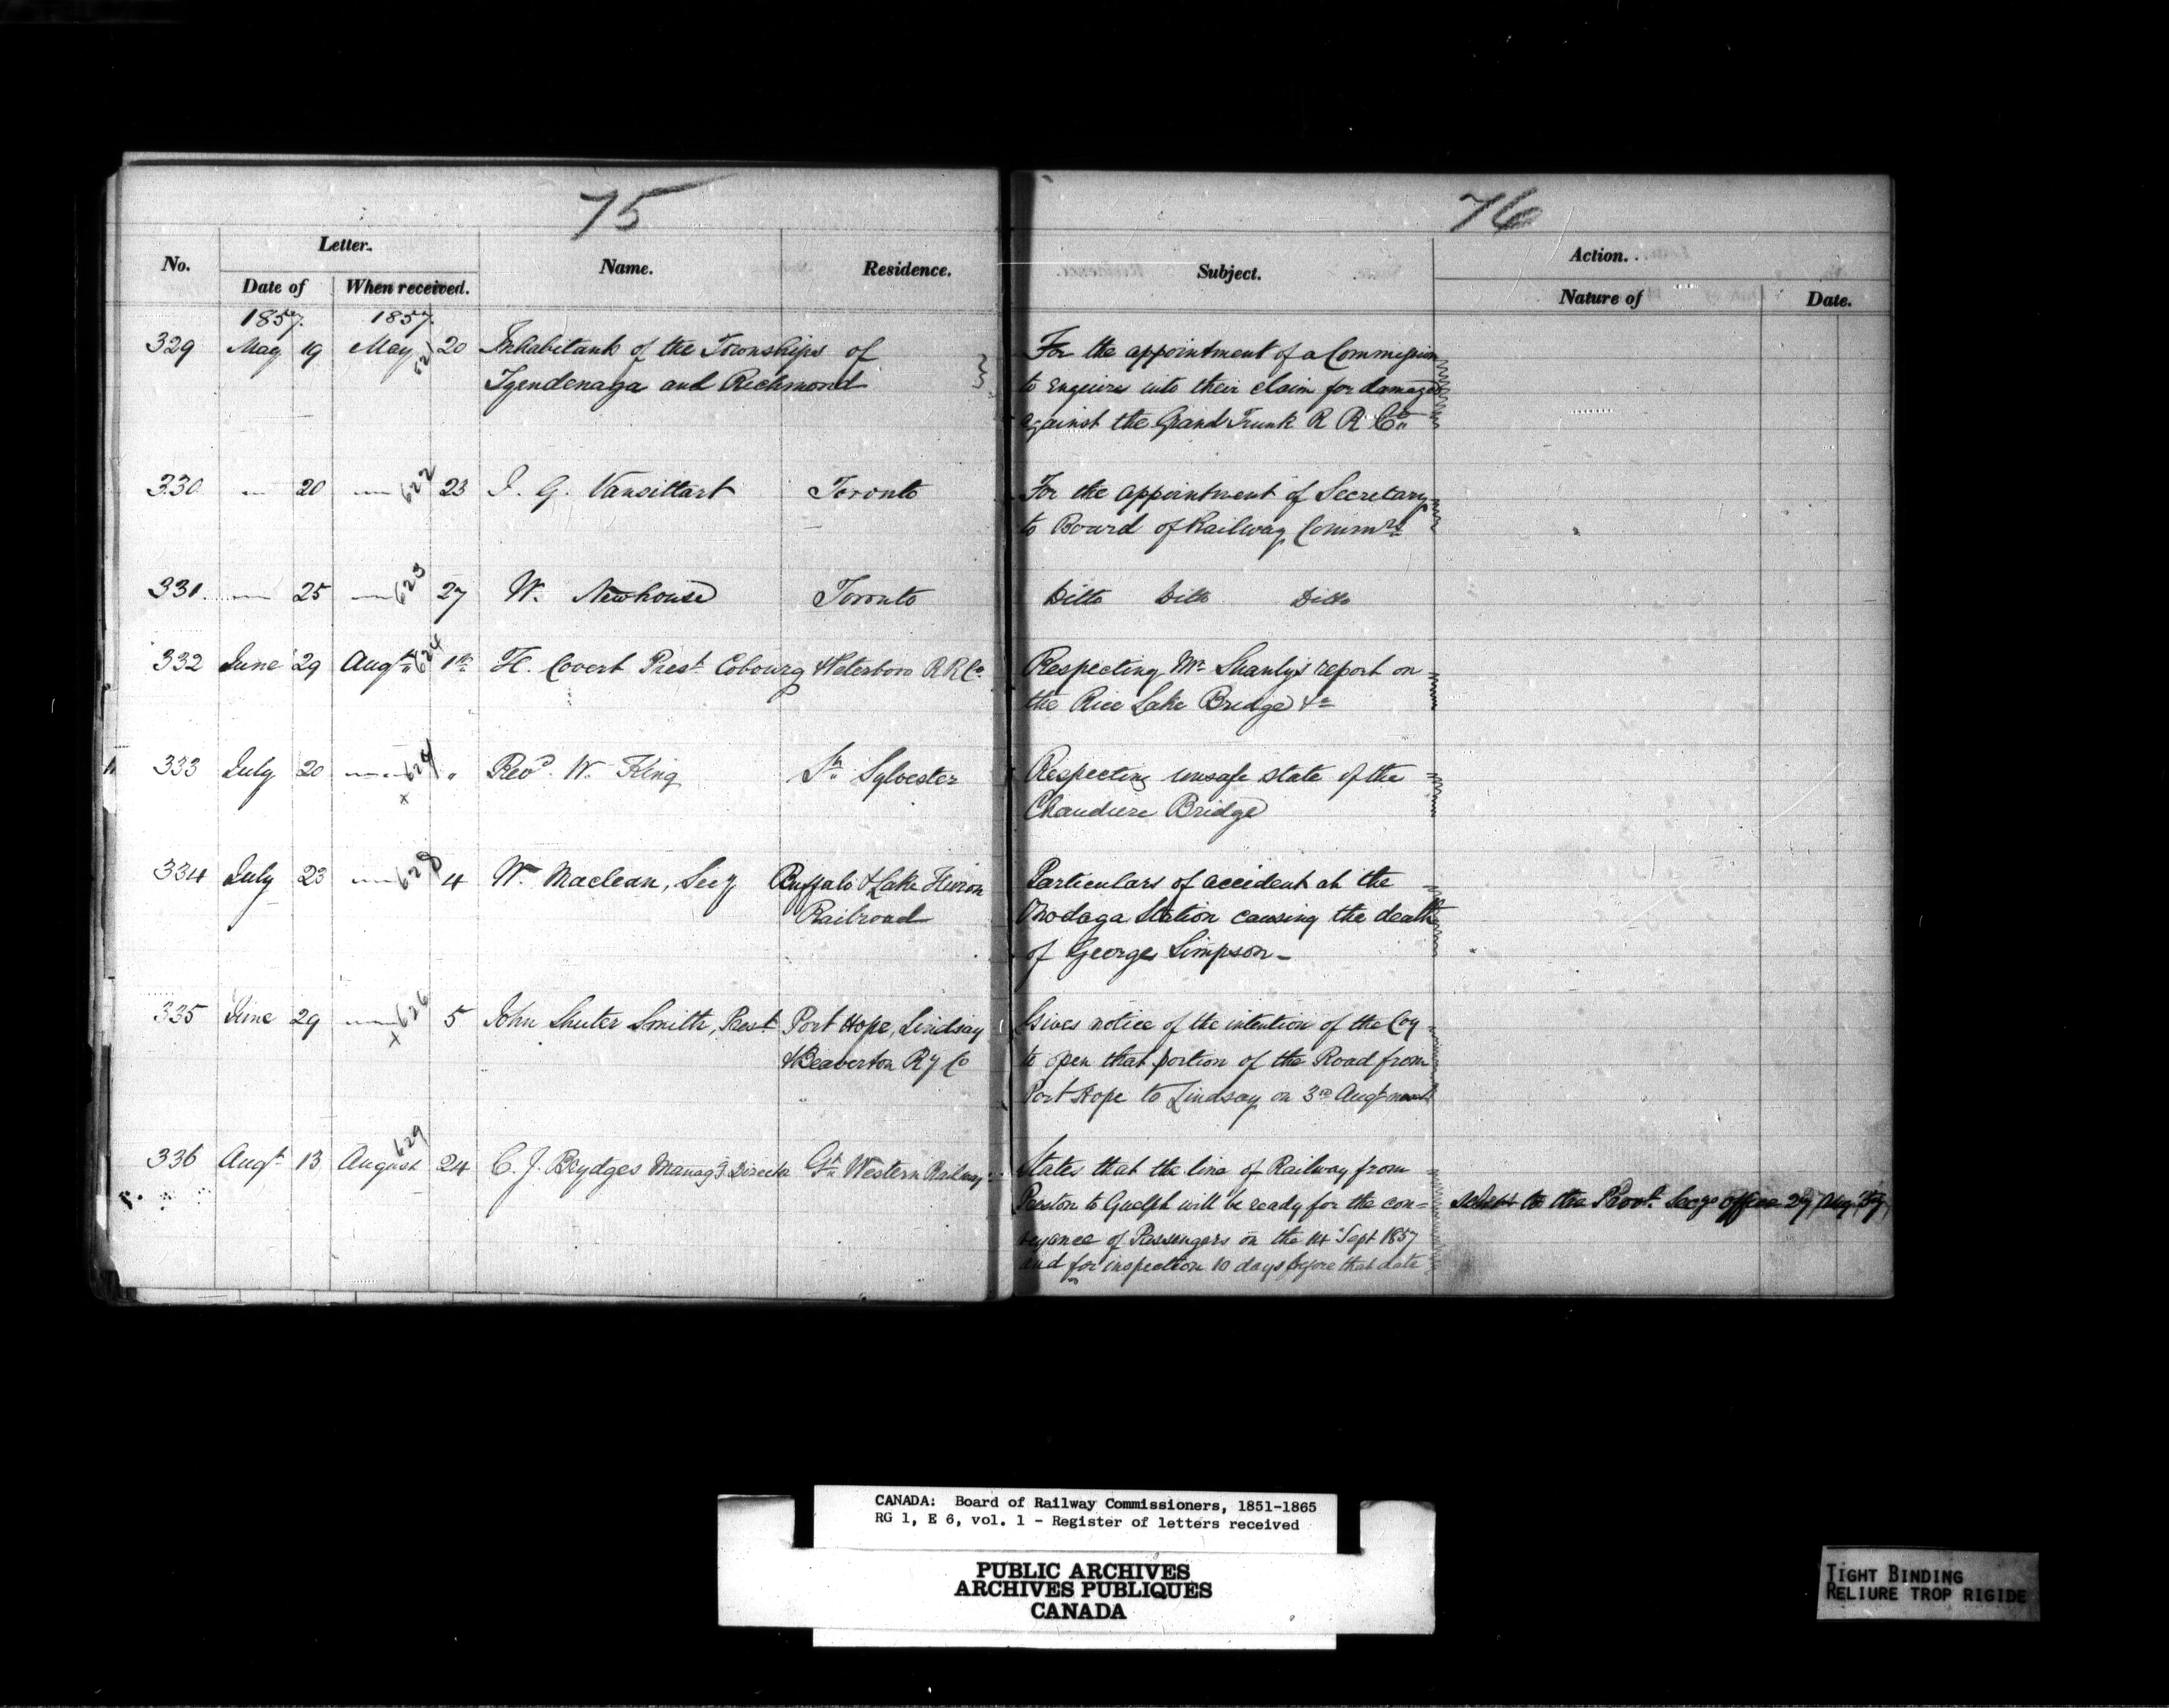 75
76
No.
Letter.
Date of
When received.
Name.
Residence.
Subject.
Action.
Nature of
Date.
1857. 1857.
329 May 19 May 621 20 Inhabitants of the Townships of
Tyendenaga and Richmond
For the appointment of a Commission
to enquire into their claim for damages
against the Grand Trunk R R Co
330 — 20 — 622 23 J. G. Vansittart Toronto
For the appointment of Secretary
to Board of Railway Commrs
331 — 25 — 623 27 W. Newhouse Toronto
Ditto Ditto Ditto
332 June 29 Augt 624 1st H. Covert Prest Cobourg & Peterboro R R Co
Respecting Mr Shanly's report on
the Rice Lake Bridge &c
333 July 20 — 624 " Revd. W. King St Sylvester
x
Respecting unsafe state of the
Chaudiere Bridge
334 July 23 — 4 Wm Maclean, Secy Buffalo & Lake Huron
Railroad
Particulars of accident at the
Onodaga Station causing the death
of George Simpson—
335 June 29 — 626 5 John Shuter Smith, Prest Port Hope, Lindsay
x
& Beaverton Ry Co
Gives notice of the intention of the Coy
to open that portion of the Road from
Port Hope to Lindsay on 3rd Augt next
336 Augt 13 August 629 24 C. J. Brydges Managg Director Gt Western Railway
States that the line of Railway from
Preston to Guelph will be ready for the con=
veyance of Passengers on the 14 Sept 1857
and for inspection 10 days before that date
to the Provl. Secys office 29 Aug 57
CANADA: Board of Railway Commissioners, 1851-1865
RG 1, E 6, vol. 1 - Register of letters received
PUBLIC ARCHIVES
ARCHIVES PUBLIQUES
CANADA
TIGHT BINDING
RELIURE TROP RIGIDE